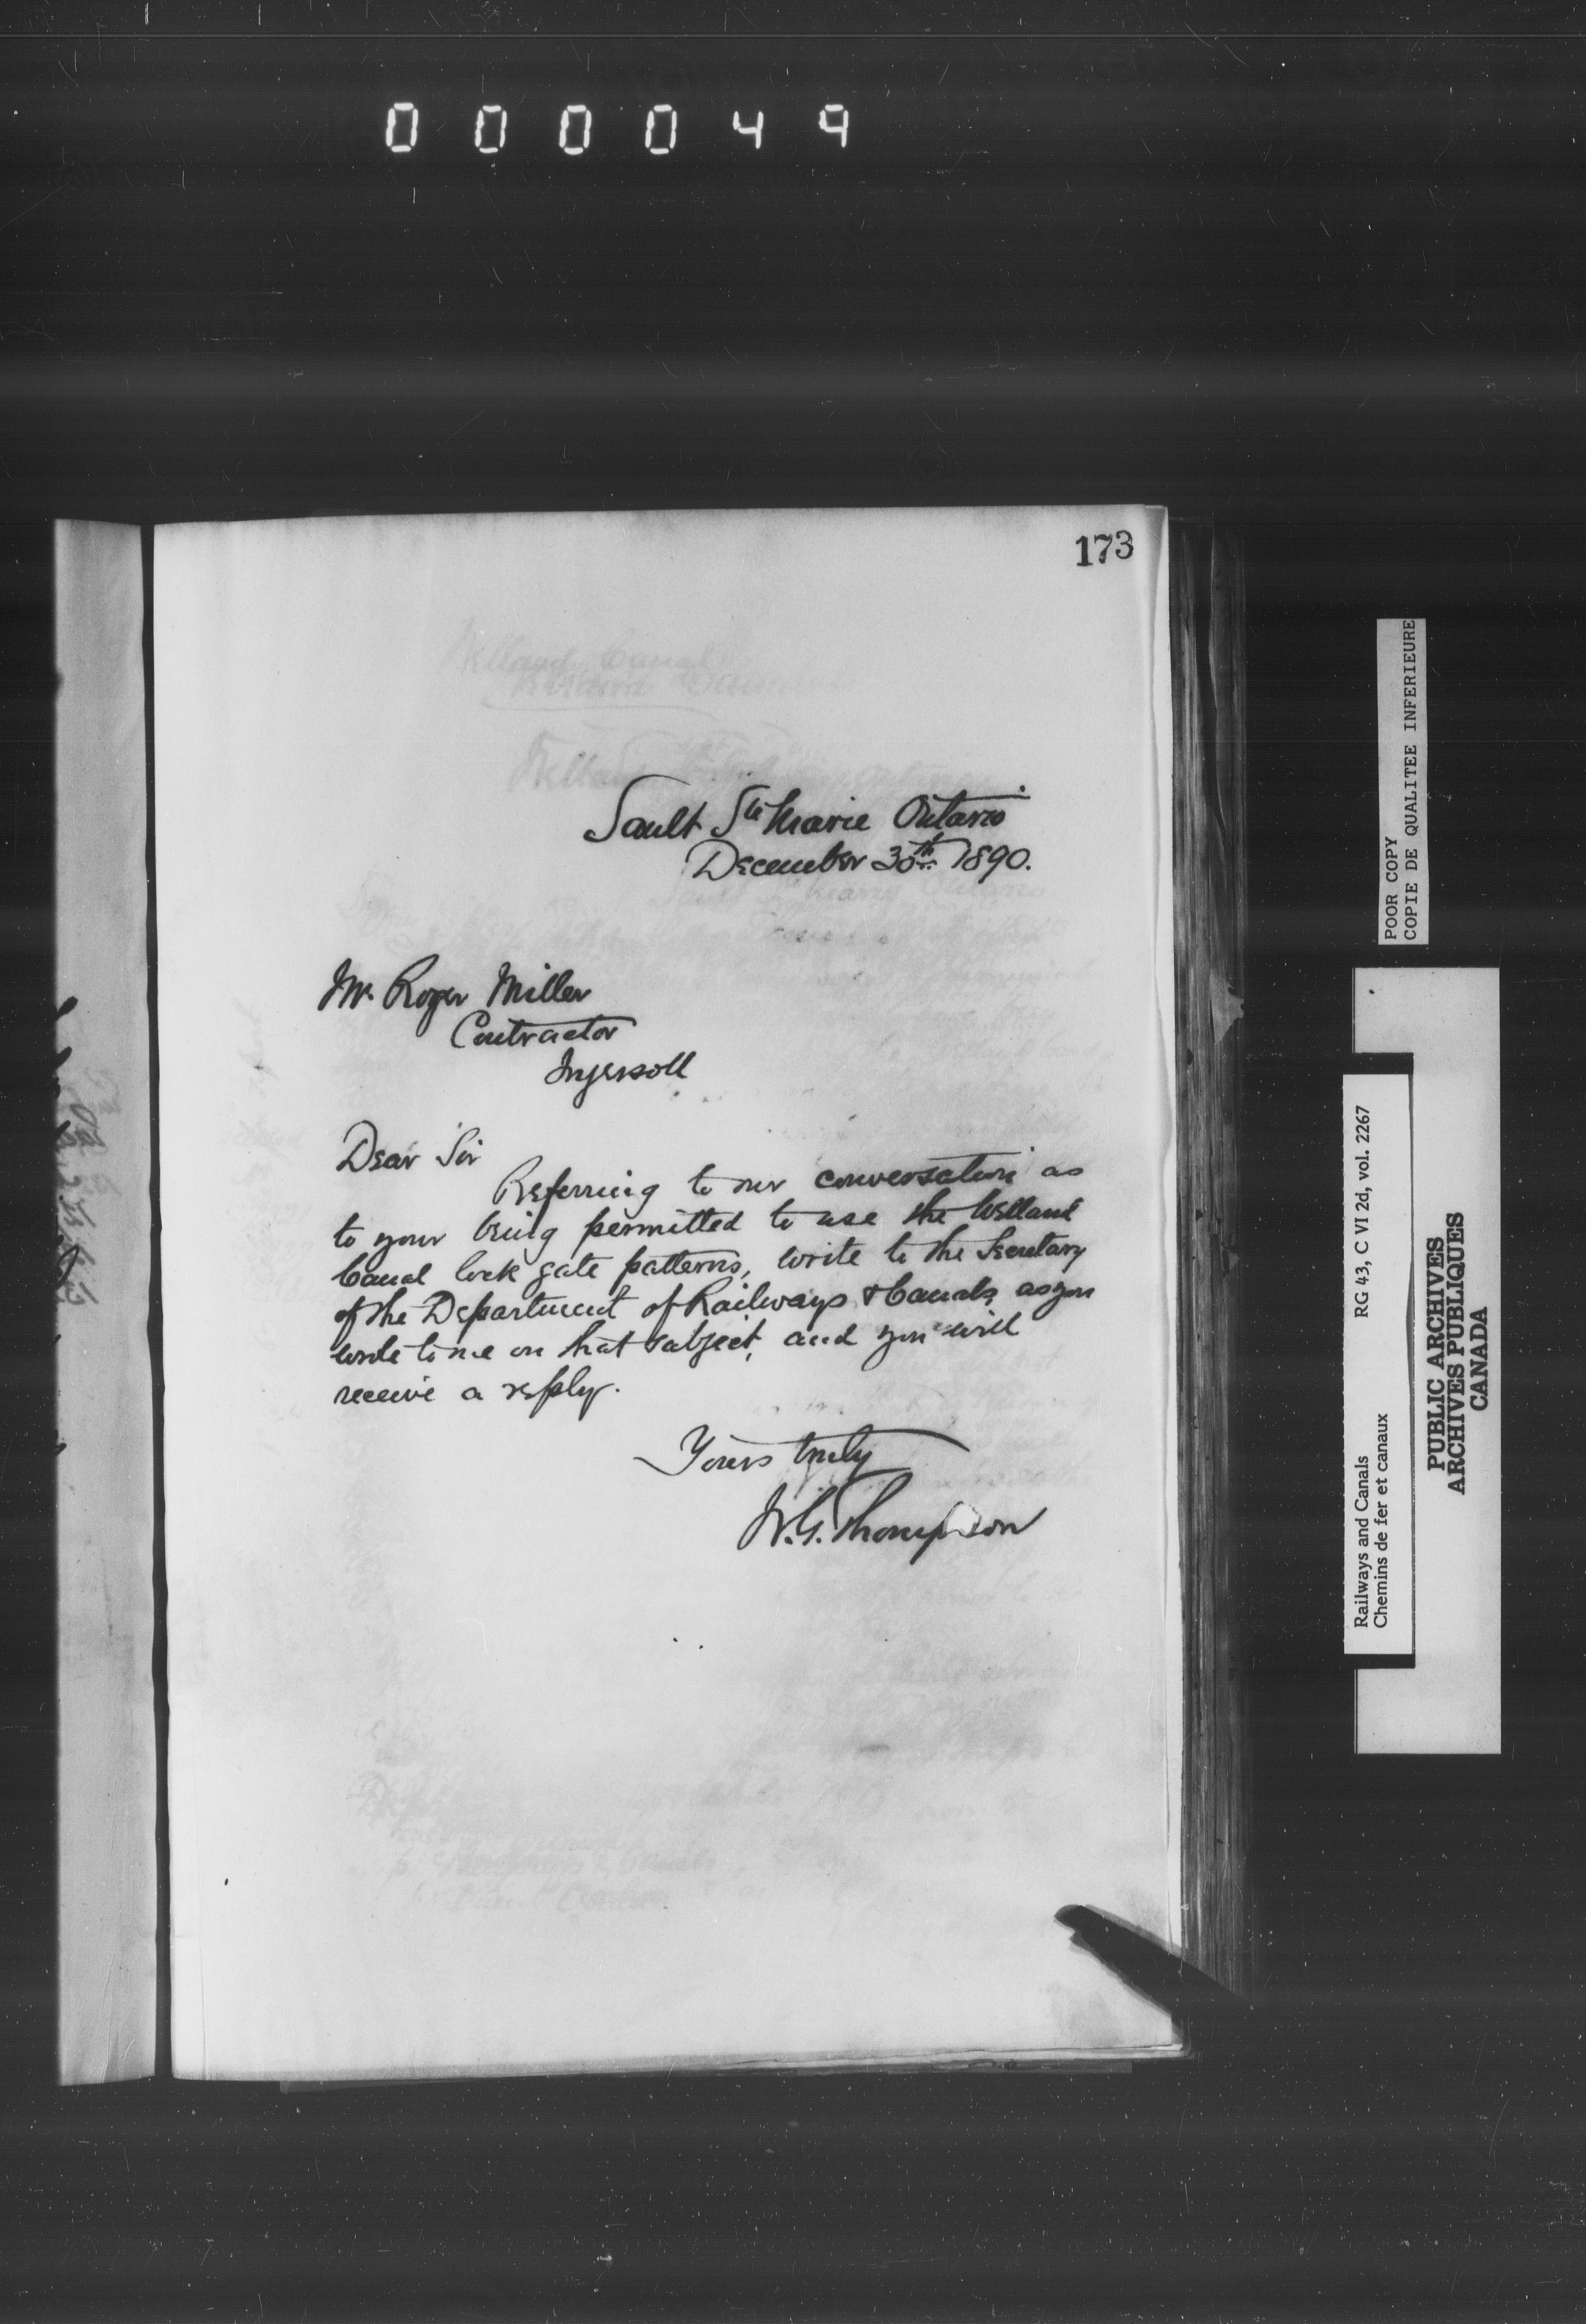 000049
173
Sault Ste Marie Ontario
December 30th 1890.
Mr. Roger Miller
Contractor
Ingersoll
Dear Sir
Referring to our conversation as
to your being permitted to use the Welland
Canal lock gate patterns, write to the Secretary
of the Department of Railways & Canals, as you
wrote to me on that subject, and you will
receive a reply.
Yours truly
W.G. Thompson
POOR COPY
COPIE DE QUALITEE INFERIEURE
Railways and Canals RG 43, C VI 2d, vol. 2267
Chemins de fer et canaux
PUBLIC ARCHIVES
ARCHIVES PUBLIQUES
CANADA